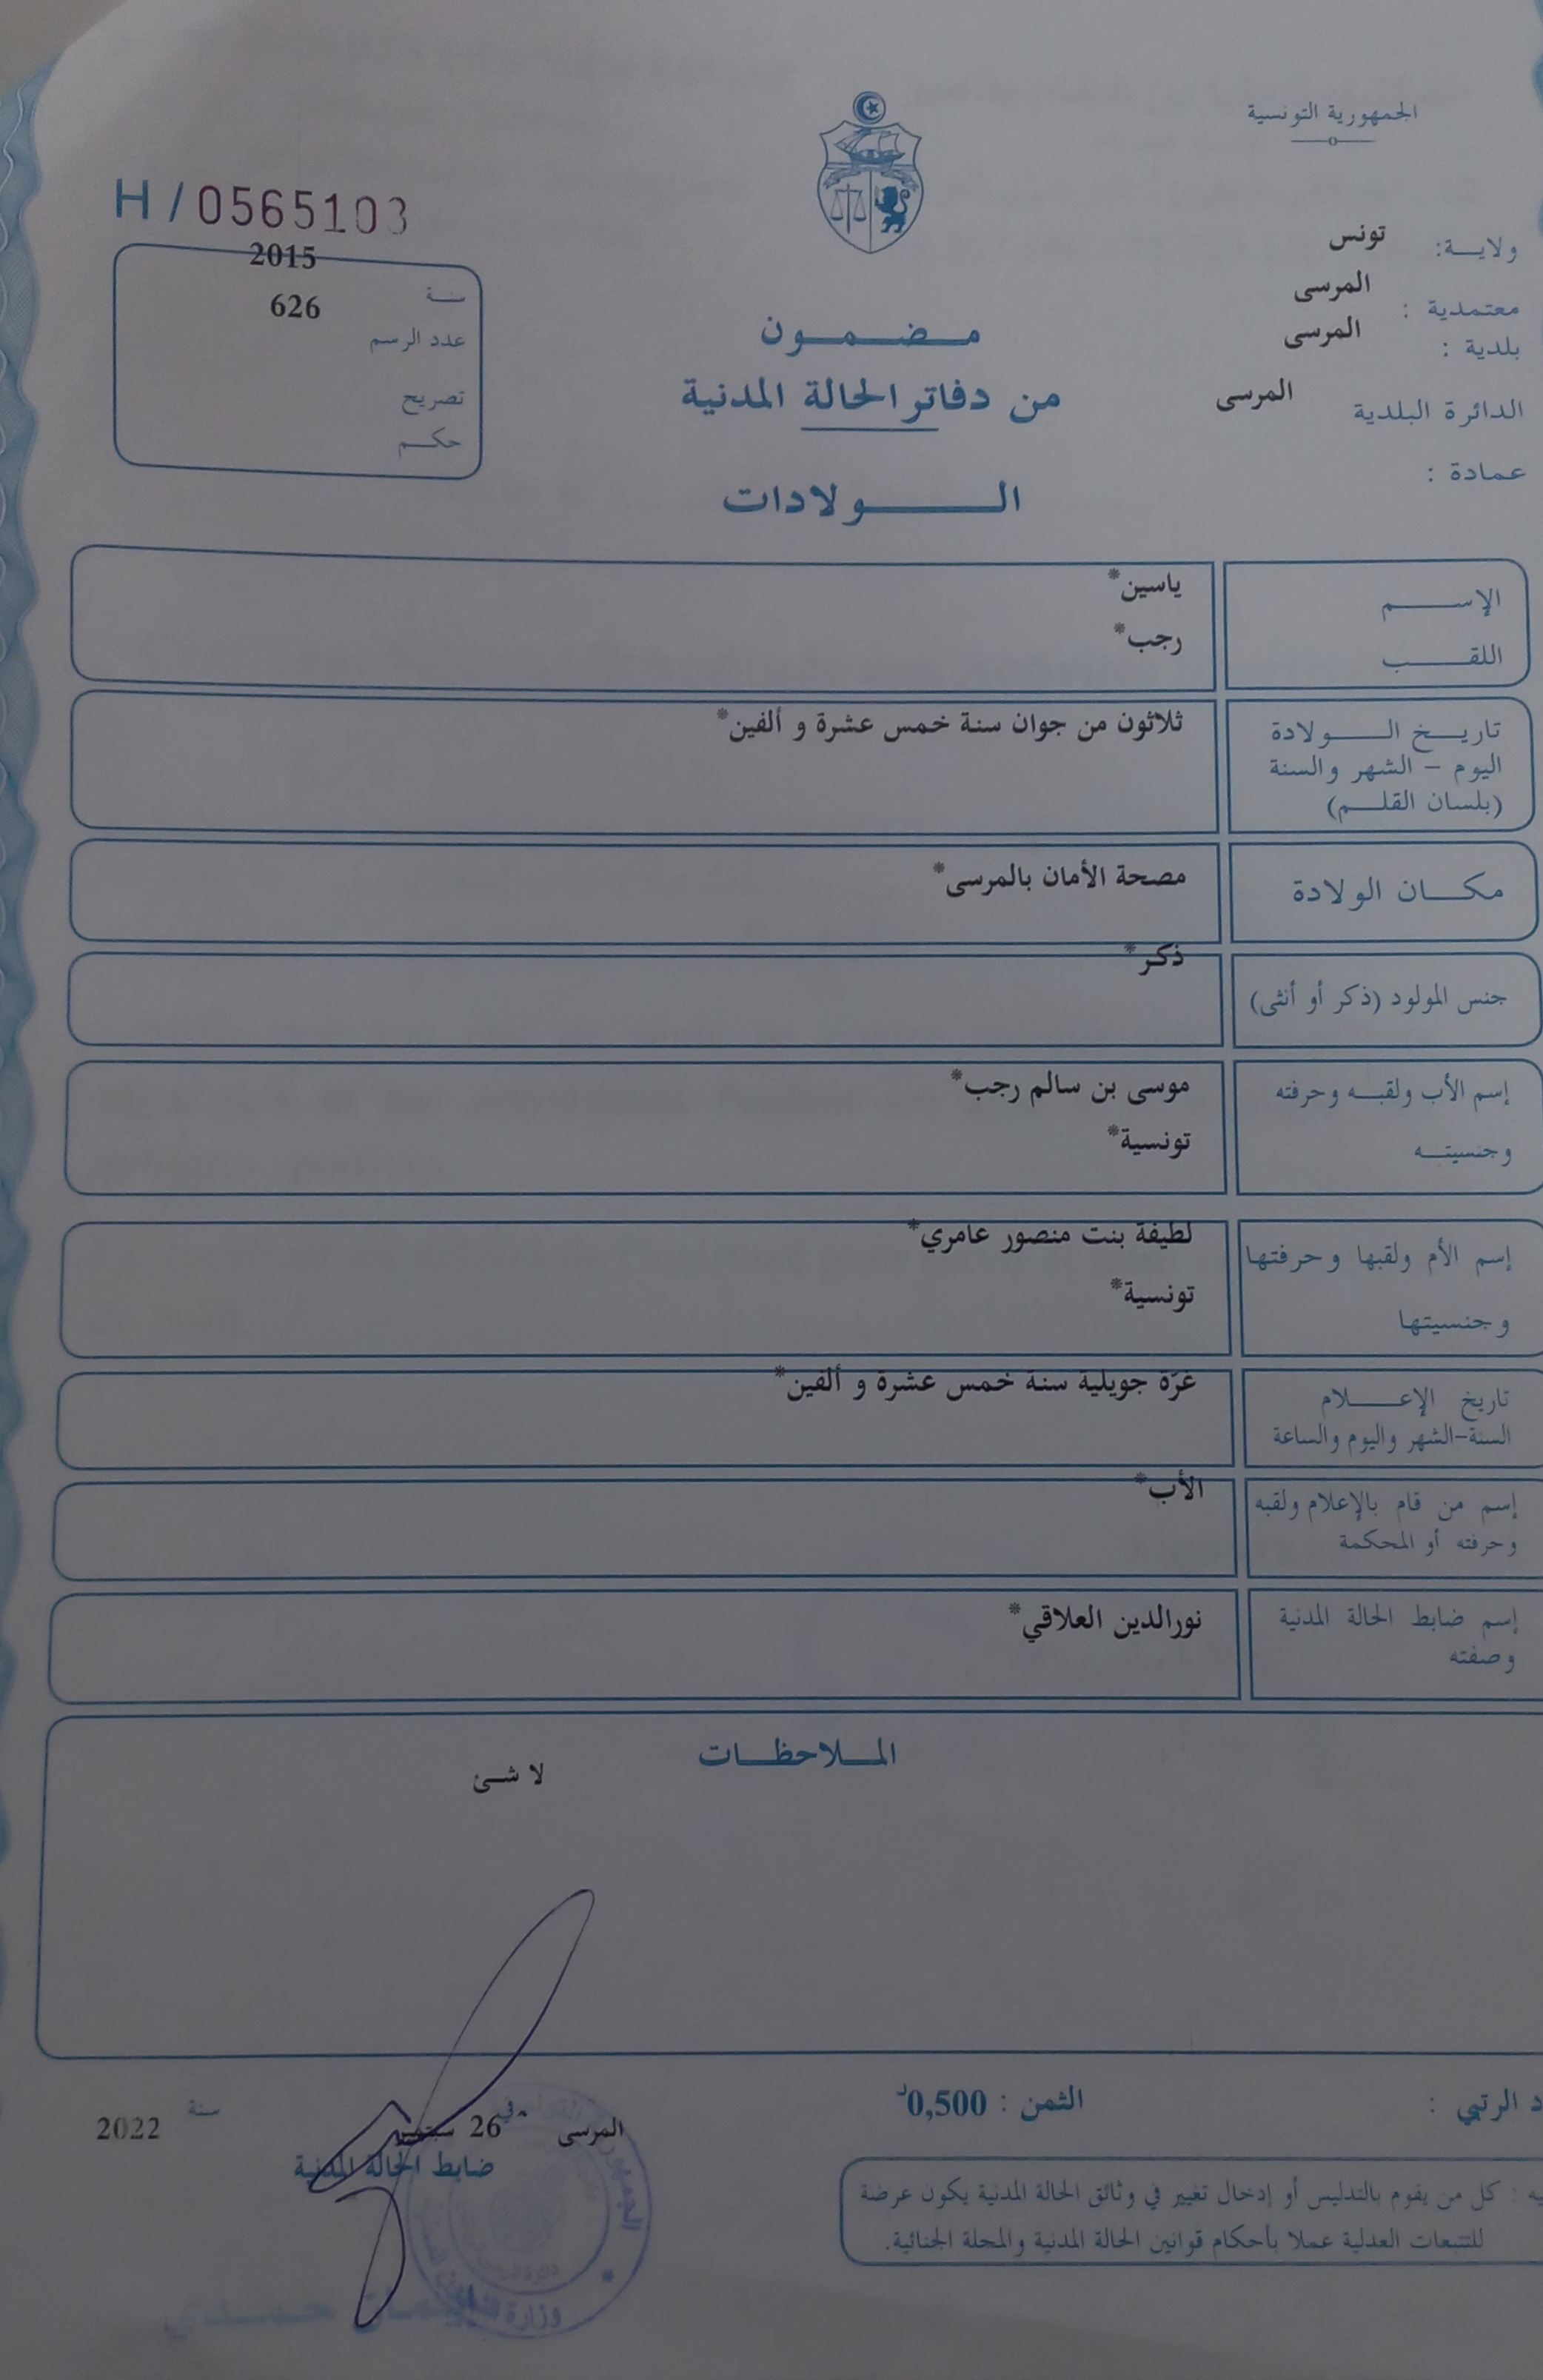 الجمهورية التونسية
ولايــة: تونس
معتمدية : المرسى
بلدية : المرسى
الدائرة البلدية المرسى
عمادة :
H / 0565103
سنـة 2015
عدد الرسم 626
تصريح
حكـم
مـضـمـون
من دفاتر الحالة المدنية
الـولادات
الإسـم ياسين*
اللقـب رجب*
تاريـخ الـولادة
اليوم – الشهر والسنة
(بلسان القلـم)
ثلاثون من جوان سنة خمس عشرة و ألفين*
مكـان الولادة مصحة الأمان بالمرسى*
جنس المولود (ذكر أو أنثى) ذكر*
إسم الأب ولقبـه وحرفته موسى بن سالم رجب*
وجنسيتـه تونسية*
إسم الأم ولقبها وحرفتها لطيفة بنت منصور عامري*
وجنسيتها تونسية*
تاريخ الإعـلام غرّة جويلية سنة خمس عشرة و ألفين*
السنة-الشهر واليوم والساعة
إسم من قام بالإعلام ولقبه الأب*
وحرفته أو المحكمة
إسم ضابط الحالة المدنية نورالدين العلاقي*
وصفته
المـلاحظـات
لا شـئ
د الرتبي :
الثمن : 0,500د
المرسى في 26 سبتمبر سنة 2022
ضابط الحالة المدنية
يه : كل من يقوم بالتدليس أو إدخال تغيير في وثائق الحالة المدنية يكون عرضة
للتتبعات العدلية عملا بأحكام قوانين الحالة المدنية والمجلة الجنائية.